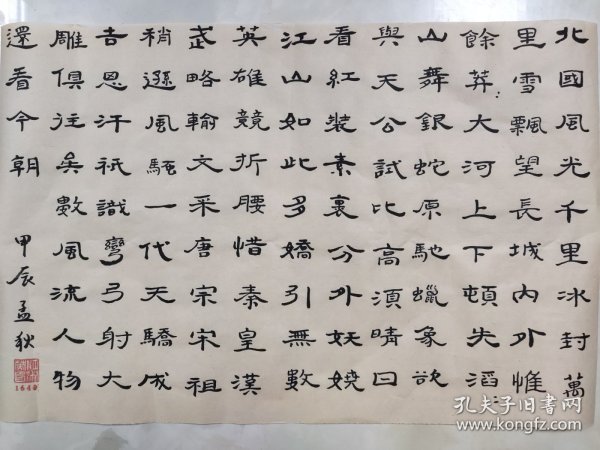 北國風光千里冰封萬
里雪飄望長城內外惟
餘莽:大河上下頓失滔:
山舞銀蛇原馳蠟象欲
與天公試比高須晴日
看紅裝素裹分外妖嬈
江山如此多嬌引無數
英雄競折腰惜秦皇漢
武略輸文采唐宗宋祖
稍遜風騷一代天驕成
吉思汗祇識彎弓射大
雕俱往矣數風流人物
還看今朝
甲辰孟狄
孔夫子旧书网
www.kongfz.com